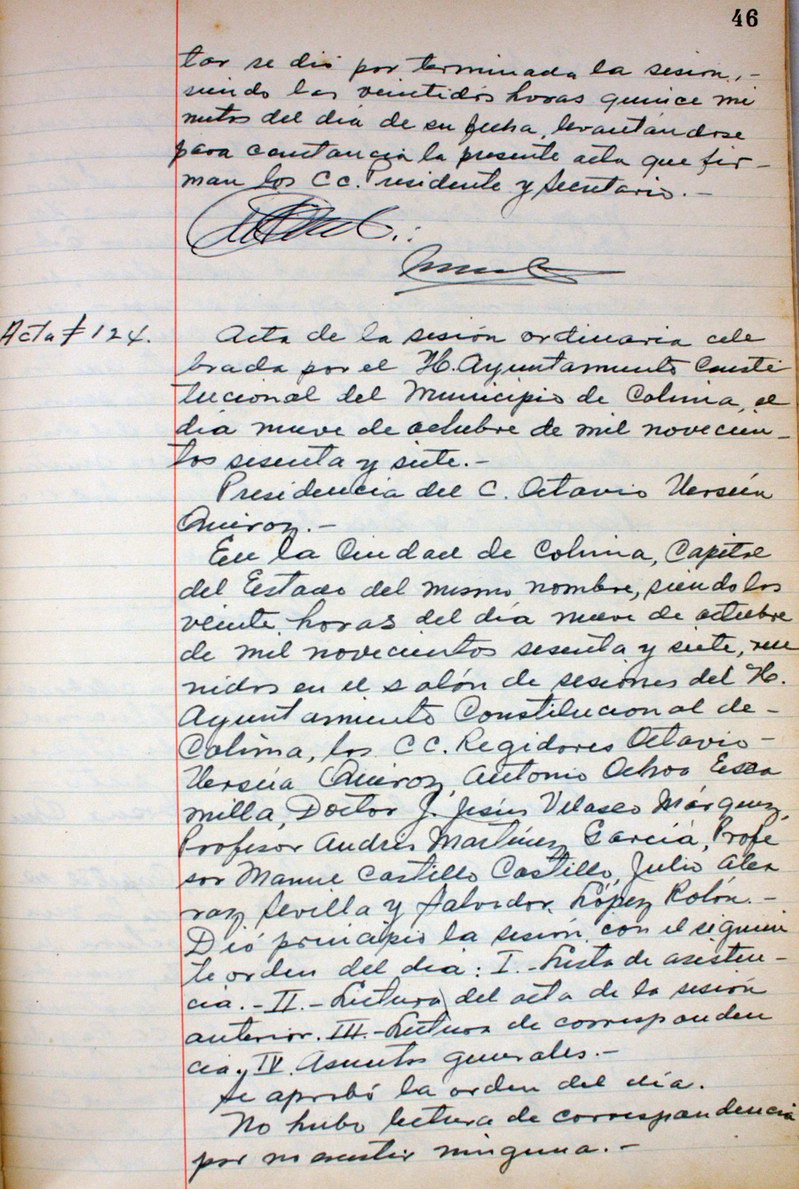 46
tar se dió por terminada la sesión, -
siendo las veintidos horas quince mi
nutos del día de su fecha, levantándose
para constancia la presente acta que fir-
man los CC. Presidente y Secretario. -
Acta # 124.
Acta de la sesión ordinaria cele
brada por el H. Ayuntamiento Consti
tucional del Municipio de Colima, el
día nueve de octubre de mil novecien-
tos sesenta y siete. -
Presidencia del C. Octavio Versúa
Quiroz. -
En la Ciudad de Colima, Capital
del Estado del mismo nombre, siendo las
veinte horas del día nueve de octubre
de mil novecientos sesenta y siete, reu
nidos en el salón de sesiones del H.
Ayuntamiento Constitucional de -
Colima, los CC. Regidores Octavio -
Versúa Quiroz, Antonio Ochoa Esca
milla, Doctor J. Jesús Velasco Márquez,
Profesor Andrés Martínez García, Profe
sor Manuel Castillo Castillo, Julio Alca
raz Sevilla y Salvador López Rolón. -
Dió principio la sesión con el siguien
te orden del día: I. - Lista de asisten-
cia. - II. - Lectura del acta de la sesión
anterior. III. - Lectura de corresponden
cia. IV. Asuntos generales. -
Se aprobó la orden del día.
No hubo lectura de correspondencia
por no existir ninguna. -